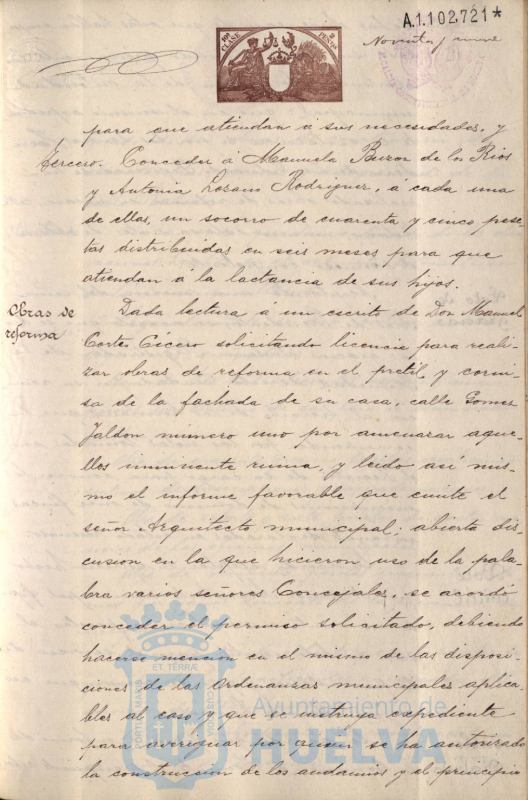 A.1.102,721*
10ª CLASE 2 PESETAS
Noventa y nueve
para que atiendan á sus necesidades, y
Tercero. Conceder á Manuela Buzon de los Rios
y Antonia Lozano Rodriguez, á cada una
de ellas, un socorro de cuarenta y cinco pese-
tas distribuidas en seis meses para que
atiendan á la lactancia de sus hijos.
Obras de
reforma
Dada lectura á un escrito de Don Manuel
Cortes Cícero solicitando licencia para reali-
zar obras de reforma en el pretil y corni-
sa de la fachada de su casa, calle Gomez
Jaldon número uno por amenazar aque-
llos inminente ruina, y leido así mis-
mo el informe favorable que emite el
señor Arquitecto municipal; abierta dis-
cusion en la que hicieron uso de la pala-
bra varios señores Concejales, se acordó
conceder el permiso solicitado, debiendo
hacerse mencion en el mismo de las disposi-
ciones de las Ordenanzas municipales aplica-
bles al caso y que se instruya expediente
para averiguar por quien se ha autorizado
la construccion de los andamios y el principio
PORTUS MARIS ET TERRÆ CUSTODIA
Ayuntamiento de
HUELVA